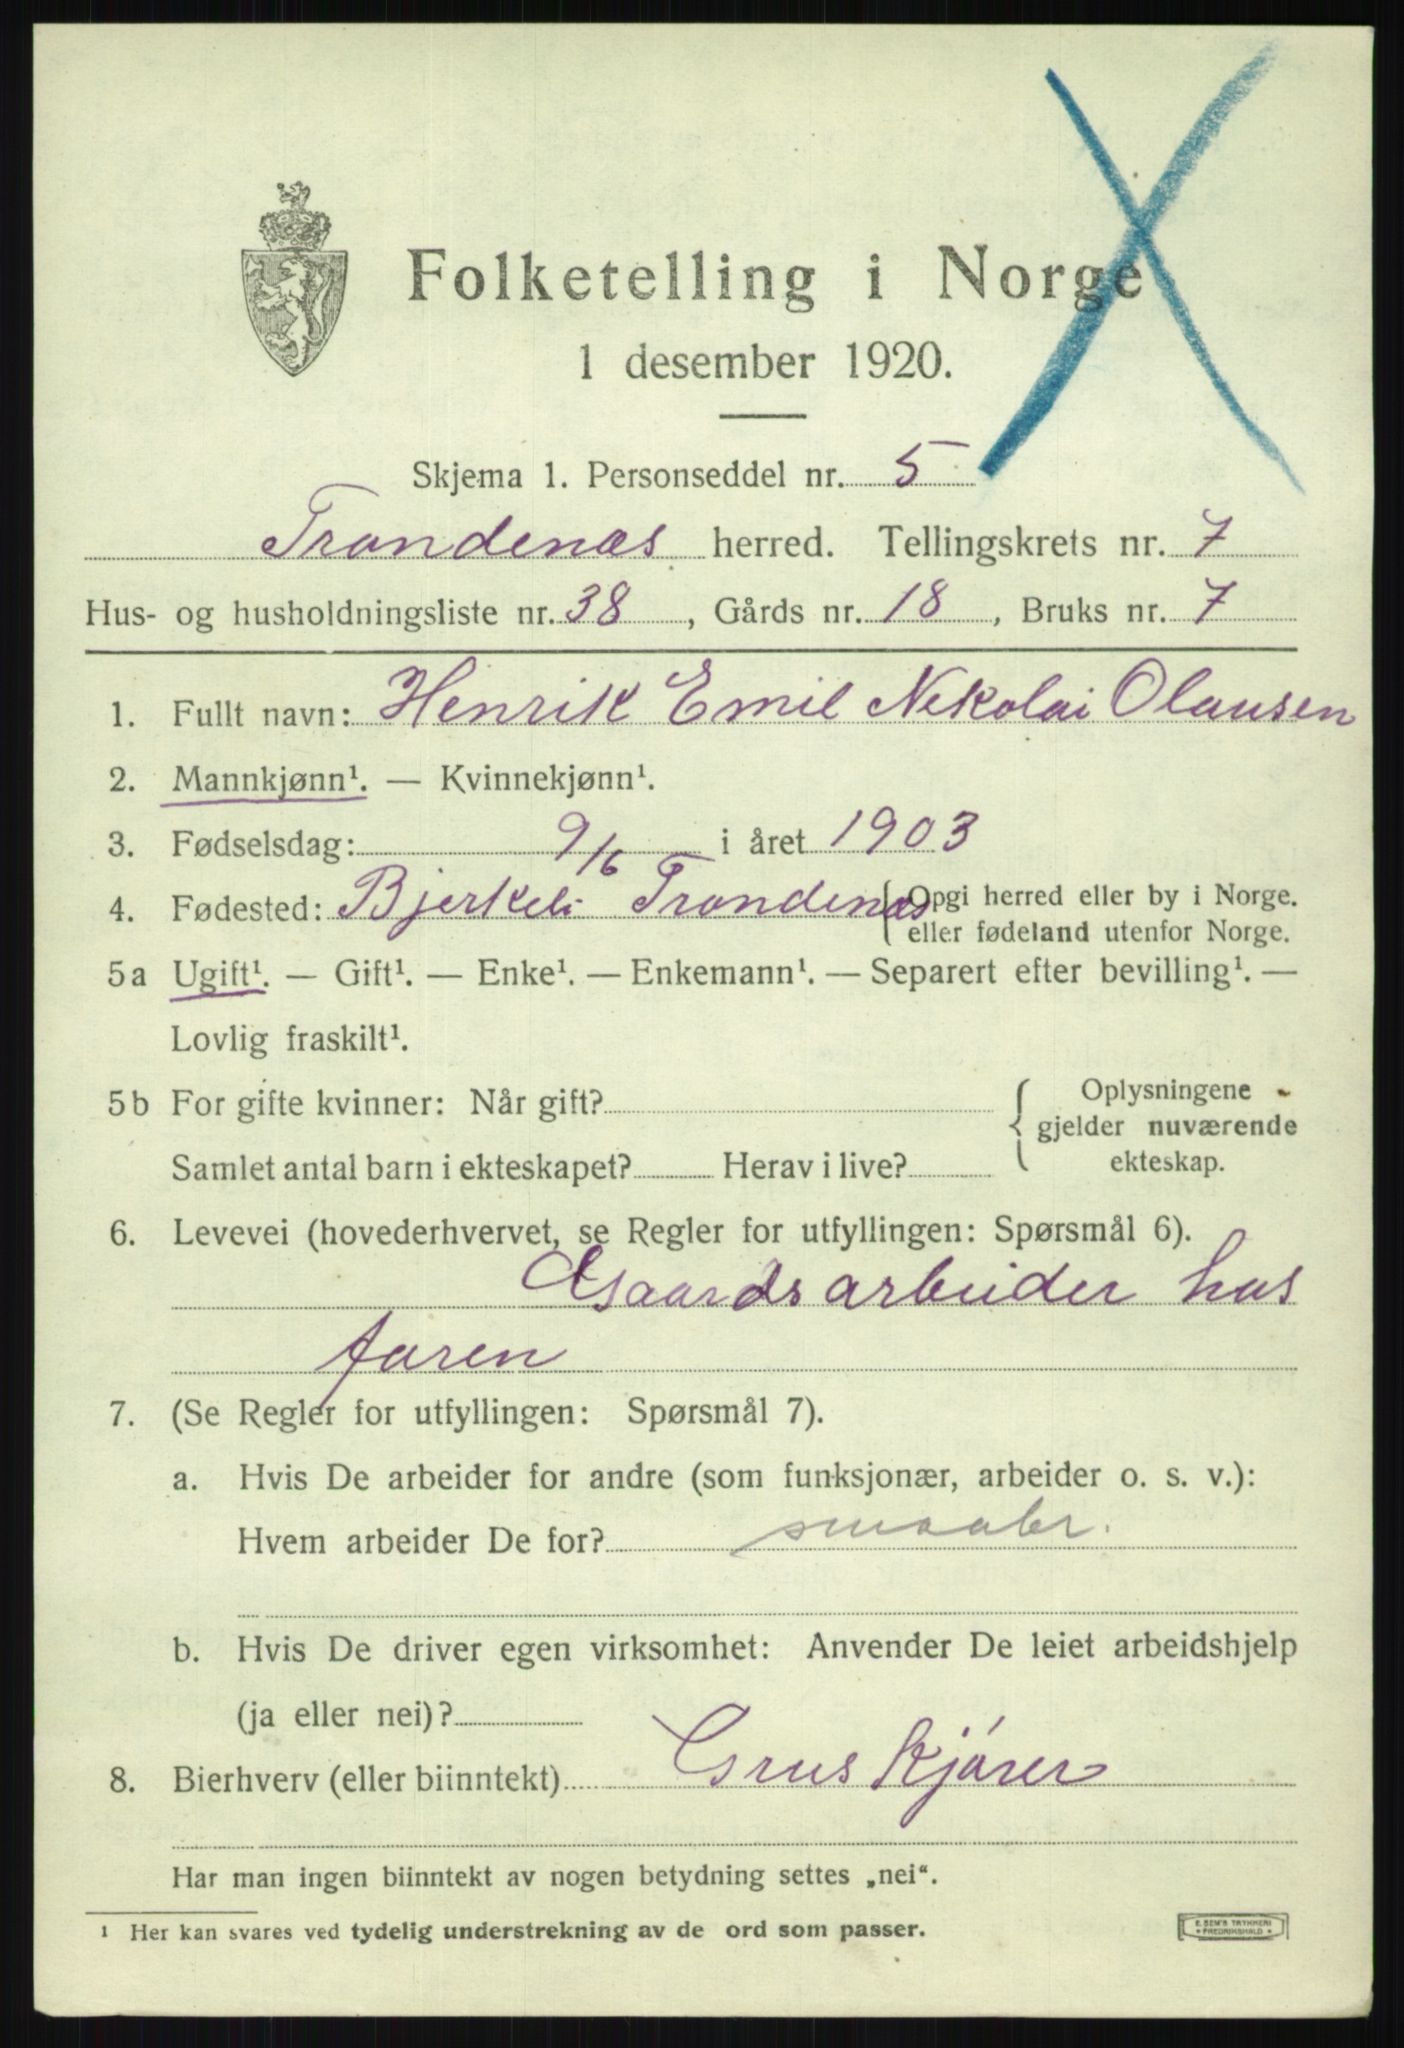 Folketelling i Norge
1 desember 1920.
Skjema 1. Personseddel nr. 5
Trondenæs herred. Tellingskrets nr. 7
Hus- og husholdningsliste nr. 38, Gårds nr. 18, Bruks nr. 7
1. Fullt navn: Henrik Emil Nekolai Olausen
2. Mannkjønn¹. — Kvinnekjønn¹.
3. Fødselsdag: 9/6 i året 1903
4. Fødested: Bjerkeli Trondenæs { Opgi herred eller by i Norge.
eller fødeland utenfor Norge.
5a Ugift¹. — Gift¹. — Enke¹. — Enkemann¹. — Separert efter bevilling¹. —
Lovlig fraskilt¹.
5b For gifte kvinner: Når gift? { Oplysningene
gjelder nuværende
Samlet antal barn i ekteskapet? Herav i live? ekteskap.
6. Levevei (hovederhvervet, se Regler for utfyllingen: Spørsmål 6).
Gaardsarbeider hos
faren
7. (Se Regler for utfyllingen: Spørsmål 7).
a. Hvis De arbeider for andre (som funksjonær, arbeider o. s. v.):
Hvem arbeider De for? smaabr.
b. Hvis De driver egen virksomhet: Anvender De leiet arbeidshjelp
(ja eller nei)?
8. Bierhverv (eller biinntekt) Gruskjórer
Har man ingen biinntekt av nogen betydning settes „nei“.
¹ Her kan svares ved tydelig understrekning av de ord som passer.
E. SEM'S TRYKKERI
FREDRIKSHALD